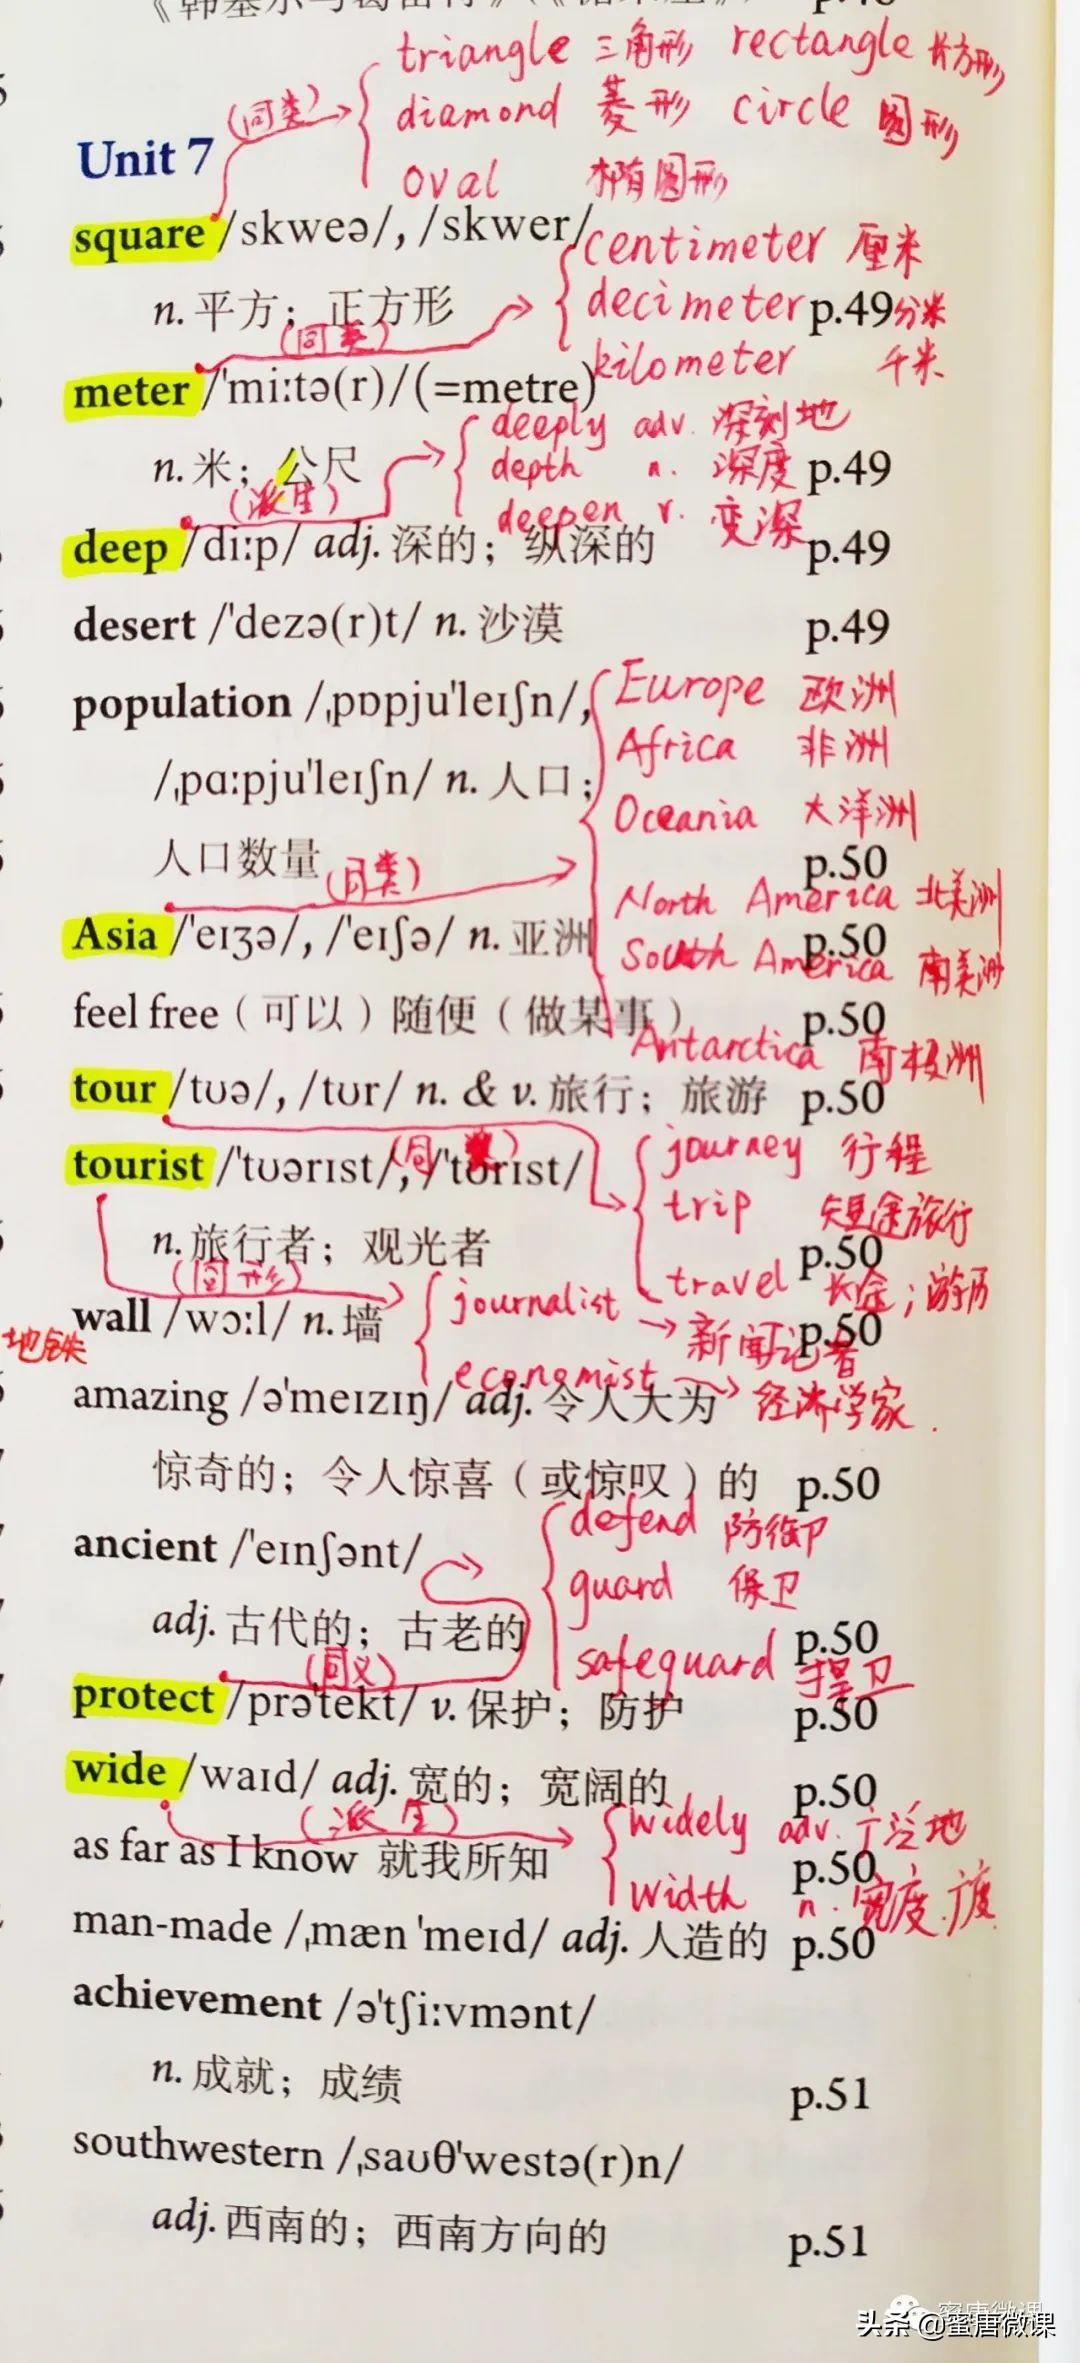 triangle 三角形 rectangle 长方形
(同类)
diamond 菱形 circle 圆形
Unit 7
oval 椭圆形
square /skweə/, /skwer/
centimeter 厘米
n. 平方；正方形
decimeter p.49 分米
(同类)
kilometer 千米
meter /ˈmiːtə(r)/ (=metre)
deeply adv. 深刻地
n. 米；公尺
depth n. 深度 p.49
(派生)
deepen v. 变深
deep /diːp/ adj. 深的；纵深的 p.49
desert /ˈdezə(r)t/ n. 沙漠 p.49
population /ˌpɒpjuˈleɪʃn/,
Europe 欧洲
Africa 非洲
/ˌpɑːpjuˈleɪʃn/ n. 人口；
Oceania 大洋洲
人口数量 p.50
(同类)
North America 北美洲
Asia /ˈeɪʒə/, /ˈeɪʃə/ n. 亚洲 p.50
South America 南美洲
feel free（可以）随便（做某事） p.50
Antarctica 南极洲
tour /tʊə/, /tʊr/ n. & v. 旅行；旅游 p.50
(同类)
journey 行程
tourist /ˈtʊərɪst/, /ˈtʊrɪst/
trip 短途旅行
n. 旅行者；观光者 p.50
(同形)
travel 长途；游历
journalist → 新闻记者
wall /wɔːl/ n. 墙 p.50
地铁
economist → 经济学家.
amazing /əˈmeɪzɪŋ/ adj. 令人大为
惊奇的；令人惊喜（或惊叹）的 p.50
defend 防御卫
ancient /ˈeɪnʃənt/
guard 保卫
adj. 古代的；古老的 p.50
safeguard 捍卫
(同义)
protect /prəˈtekt/ v. 保护；防护 p.50
wide /waɪd/ adj. 宽的；宽阔的 p.50
(派生)
widely adv. 广泛地
as far as I know 就我所知 p.50
width n. 宽度.广度.
man-made /ˌmæn ˈmeɪd/ adj. 人造的 p.50
achievement /əˈtʃiːvmənt/
n. 成就；成绩 p.51
southwestern /ˌsaʊθˈwestə(r)n/
adj. 西南的；西南方向的 p.51
蜜唐微课
头条 @蜜唐微课